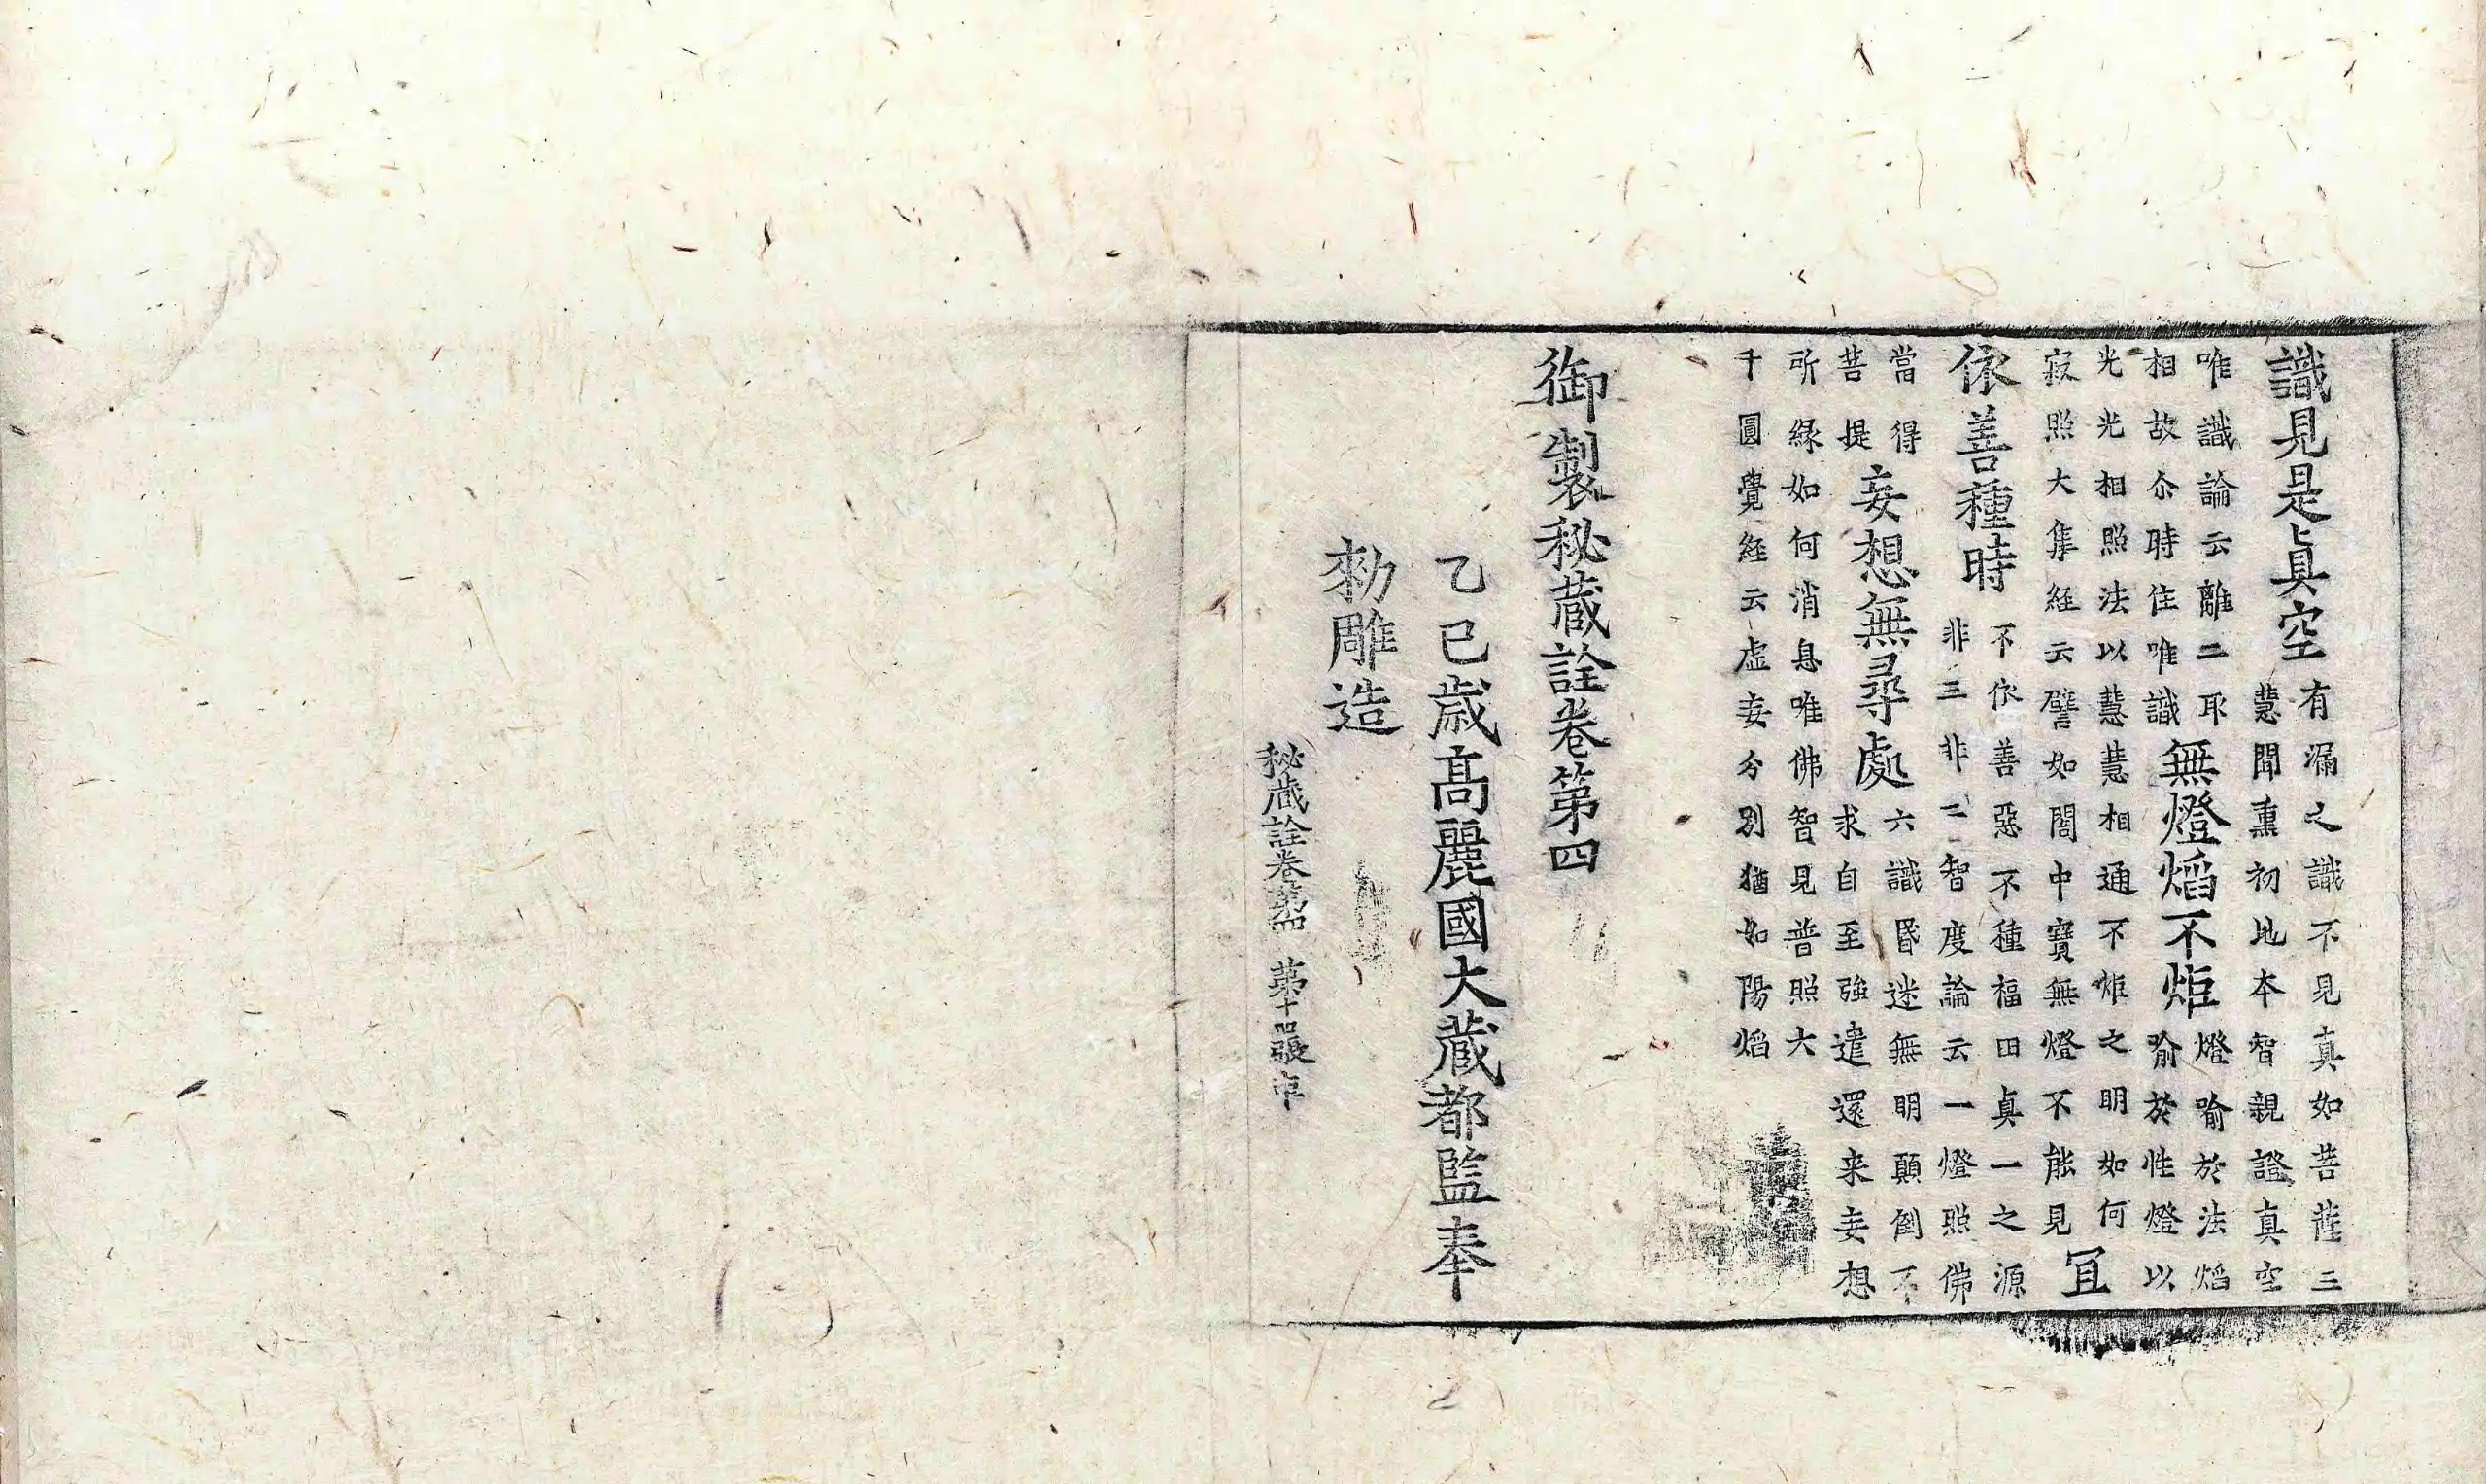 識見是真空
有漏之識不見真如菩薩三
慧聞熏初地本智親證真空
唯識論云離二取
相故尒時住唯識
無燈焰不炬
燈喻於法焰
喻於性燈以
光光相照法以慧慧相通不炬之明如何
寂照大集経云譬如闇中寶無燈不能見
冝
依善種時
不依善惡不種福田真一之源
非三非二智度論云一燈照佛
當得
菩提
妄想無尋處
六識昬迷無明顛倒不
求自至強遣還来妄想
所縁如何消息唯佛智見普照大
千圓覺経云虛妄分別猶如陽焰
御製秘蔵詮卷第四
乙巳歳高麗國大蔵都監奉
勑雕造
秘蔵詮卷第四　第十四張